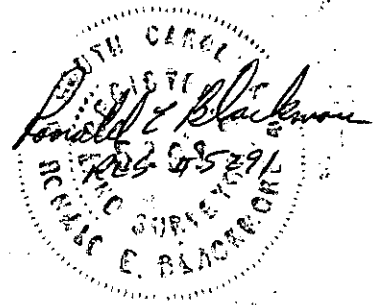 SOUTH CAROL
GISTE
Ronald E Blackmore
RLS #5291
SURVEYOR
RONALD E. BLACKMORE